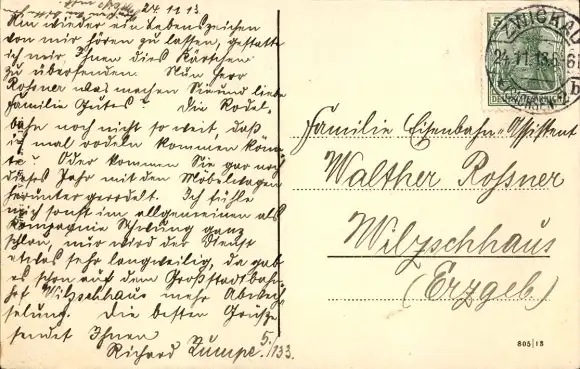 24.11.13
Um wieder ein Lebenszeichen
von mir hören zu lassen, gestatte
ich mir Ihnen dies Kärtchen
zu übersenden. Nun Herr
Rossner was machen Sie und liebe
Familie Gutes? Die Rodel-
bahn noch nicht so weit, daß
ich mal rodeln kommen könn-
te? Oder kommen Sie gar noch
dieses Jahr mit dem Möbelwagen
heruntergerodelt. Ich fühle
mich sonst im allgemeinen als
Kompagnie Schreiber ganz
schon, nur wird der Dienst
etwas sehr langweilig, da gab
es schon auf dem Großstadtbahn-
hof Wilzschhaus mehr Abwech-
selung. Die besten Grüsse
sendet Ihnen
Richard Lumpe. 5./133.
ZWICKAU
24.11.13.5-6N
b
5
DEUTSCHES REICH
Familie Eisenbahn-Assistent
Walther Rossner
Wilzschhaus
(Erzgeb)
805|13